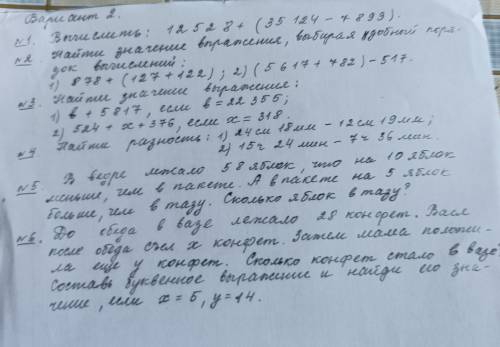 Вариант 2.
№1. Вычислить: 12528 + (35124 - 7893).
№2. Найти значение выражения, выбирая удобный поря-
док вычислений:
1) 878 + (127 + 122); 2) (5617 + 782) - 517.
№3. Найти значение выражения:
1) в + 5817, если в = 22355;
2) 524 + х + 376, если х = 318.
№4 Найти разность: 1) 24см 18мм - 12см 19мм;
2) 15ч 24мин - 7ч 36мин.
№5. В ведре лежало 58 яблок, что на 10 яблок
меньше, чем в пакете. А в пакете на 5 яблок
больше, чем в тазу. Сколько яблок в тазу?
№6. До обеда в вазе лежало 28 конфет. Вася
после обеда съел х конфет. Затем мама положи-
ла еще у конфет. Сколько конфет стало в вазе?
Составь буквенное выражение и найди его зна-
чение, если х = 5, у = 14.